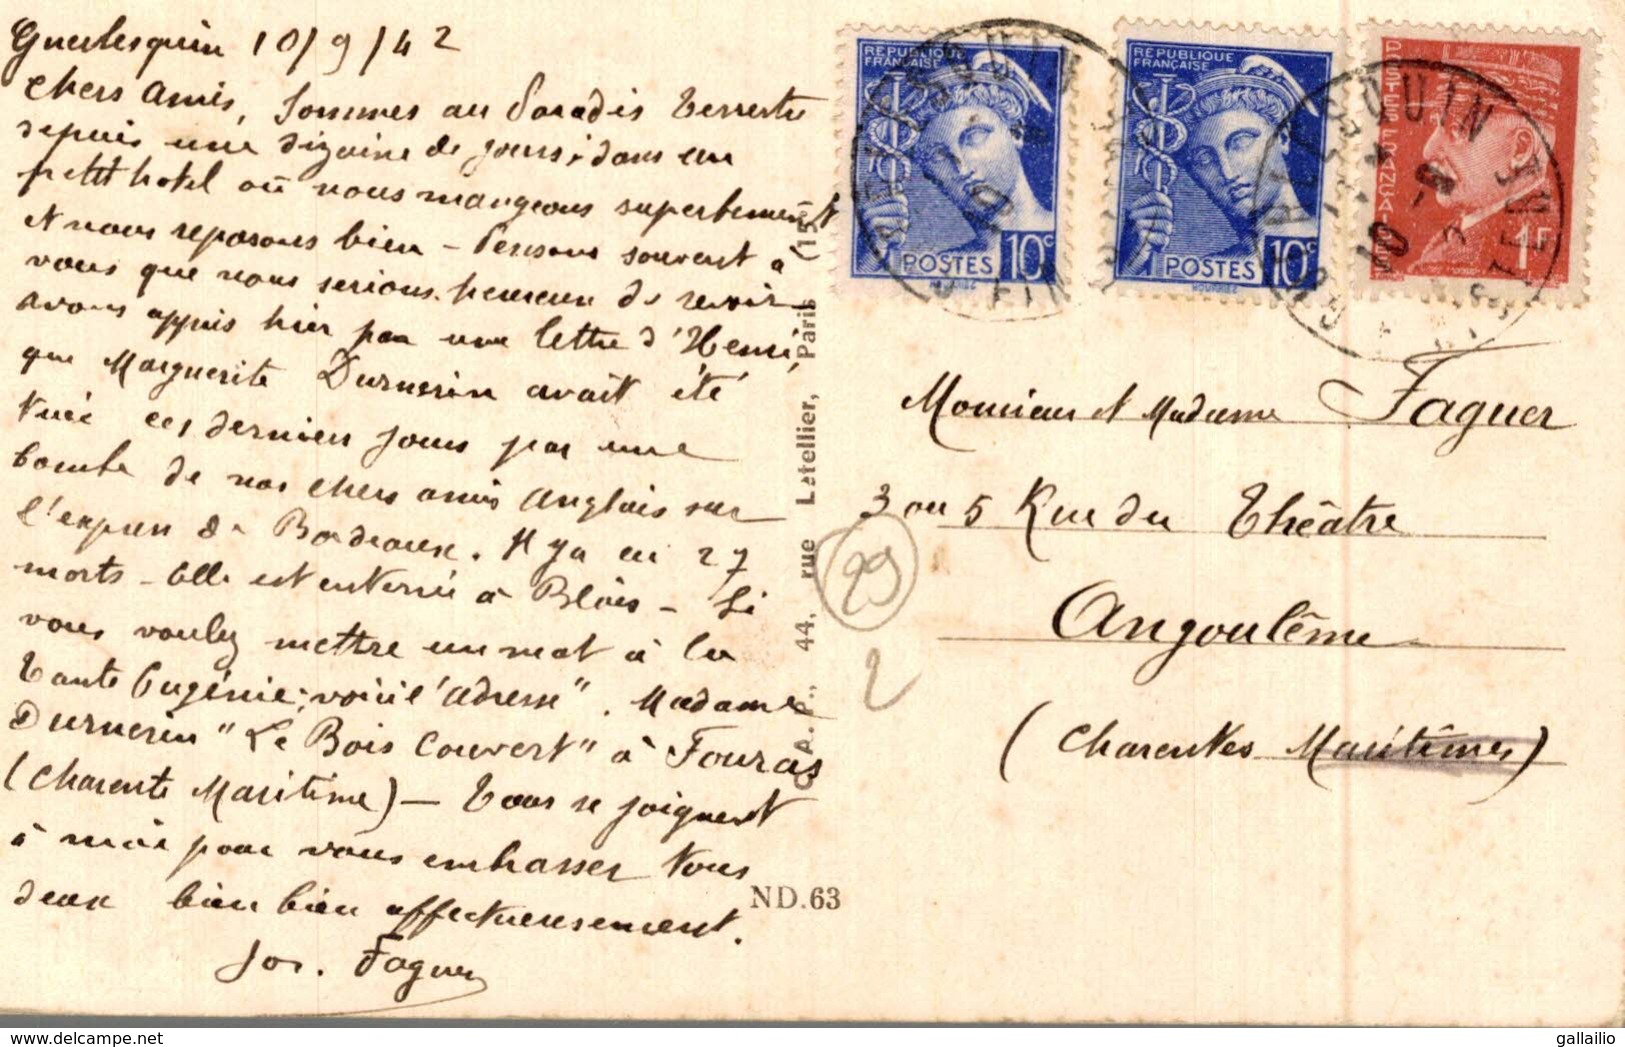 Guerlesquin 10/9/42
Chers Amis, Sommes au Paradis Terrestre
depuis une dizaine de jours, dans un
petit hotel où nous mangeons superbement
et nous reposons bien - Pensons souvent à
vous que nous serions heureux de revoir
avons appris hier par une lettre d'Henri,
que Marguerite Durnerin avait été
tuée ces derniers jours par une
bombe de nos chers amis Anglais sur
l'express de Bordeaux. Il y a eu 27
morts - Elle est enterrée à Blois - Si
vous voulez mettre un mot à la
tante Eugénie, voici l'adresse". Madame
Durnerin "Le Bois Couvert" à Fouras
(Charente Maritime) - Tous se joignent
à moi pour vous embrasser tous
deux bien bien affectueusement.
Jos. Faguer
C.A.P., 44, rue Letellier, Paris (15e)
ND.63
RÉPUBLIQUE
FRANÇAISE
POSTES 10c
RÉPUBLIQUE
FRANÇAISE
POSTES 10c
POSTES FRANÇAISES
1F
GUERLESQUIN
FINISTERE
Monsieur et Madame Faguer
3 ou 5 Rue du Théâtre
Angoulême
(Charentes Maritimes)
29
2
https://www.delcampe.net
gallailio